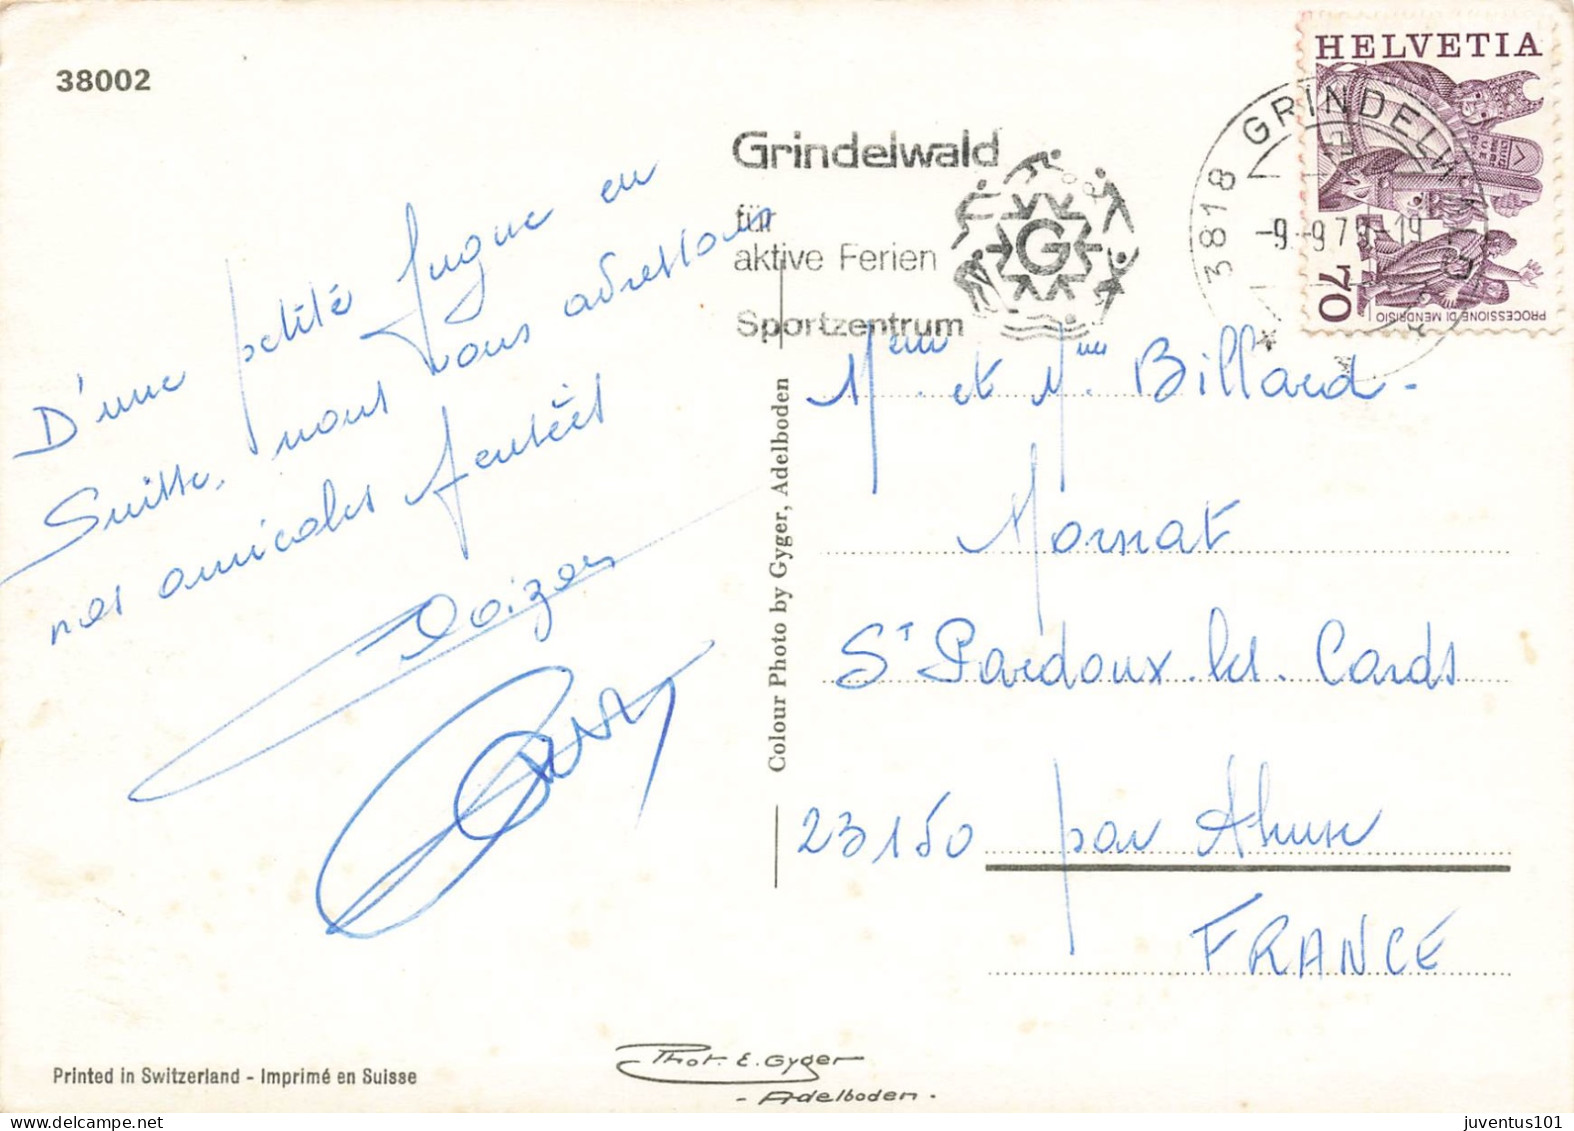 38002
HELVETIA
70
PROCESSIONE DI MENDRISIO
3818 GRINDELWALD
-9.-9.7
-19
Grindelwald
für
aktive Ferien
Sportzentrum
G
D'une petite fugue en
Suisse, nous vous adressons
nos amicales pensées
Mme et M. Billard -
St Pardoux. les. Cards
23150 par Ahun
FRANCE
Colour Photo by Gyger, Adelboden
Printed in Switzerland - Imprimé en Suisse
Phot. E. Gyger
- Adelboden -
juventus101